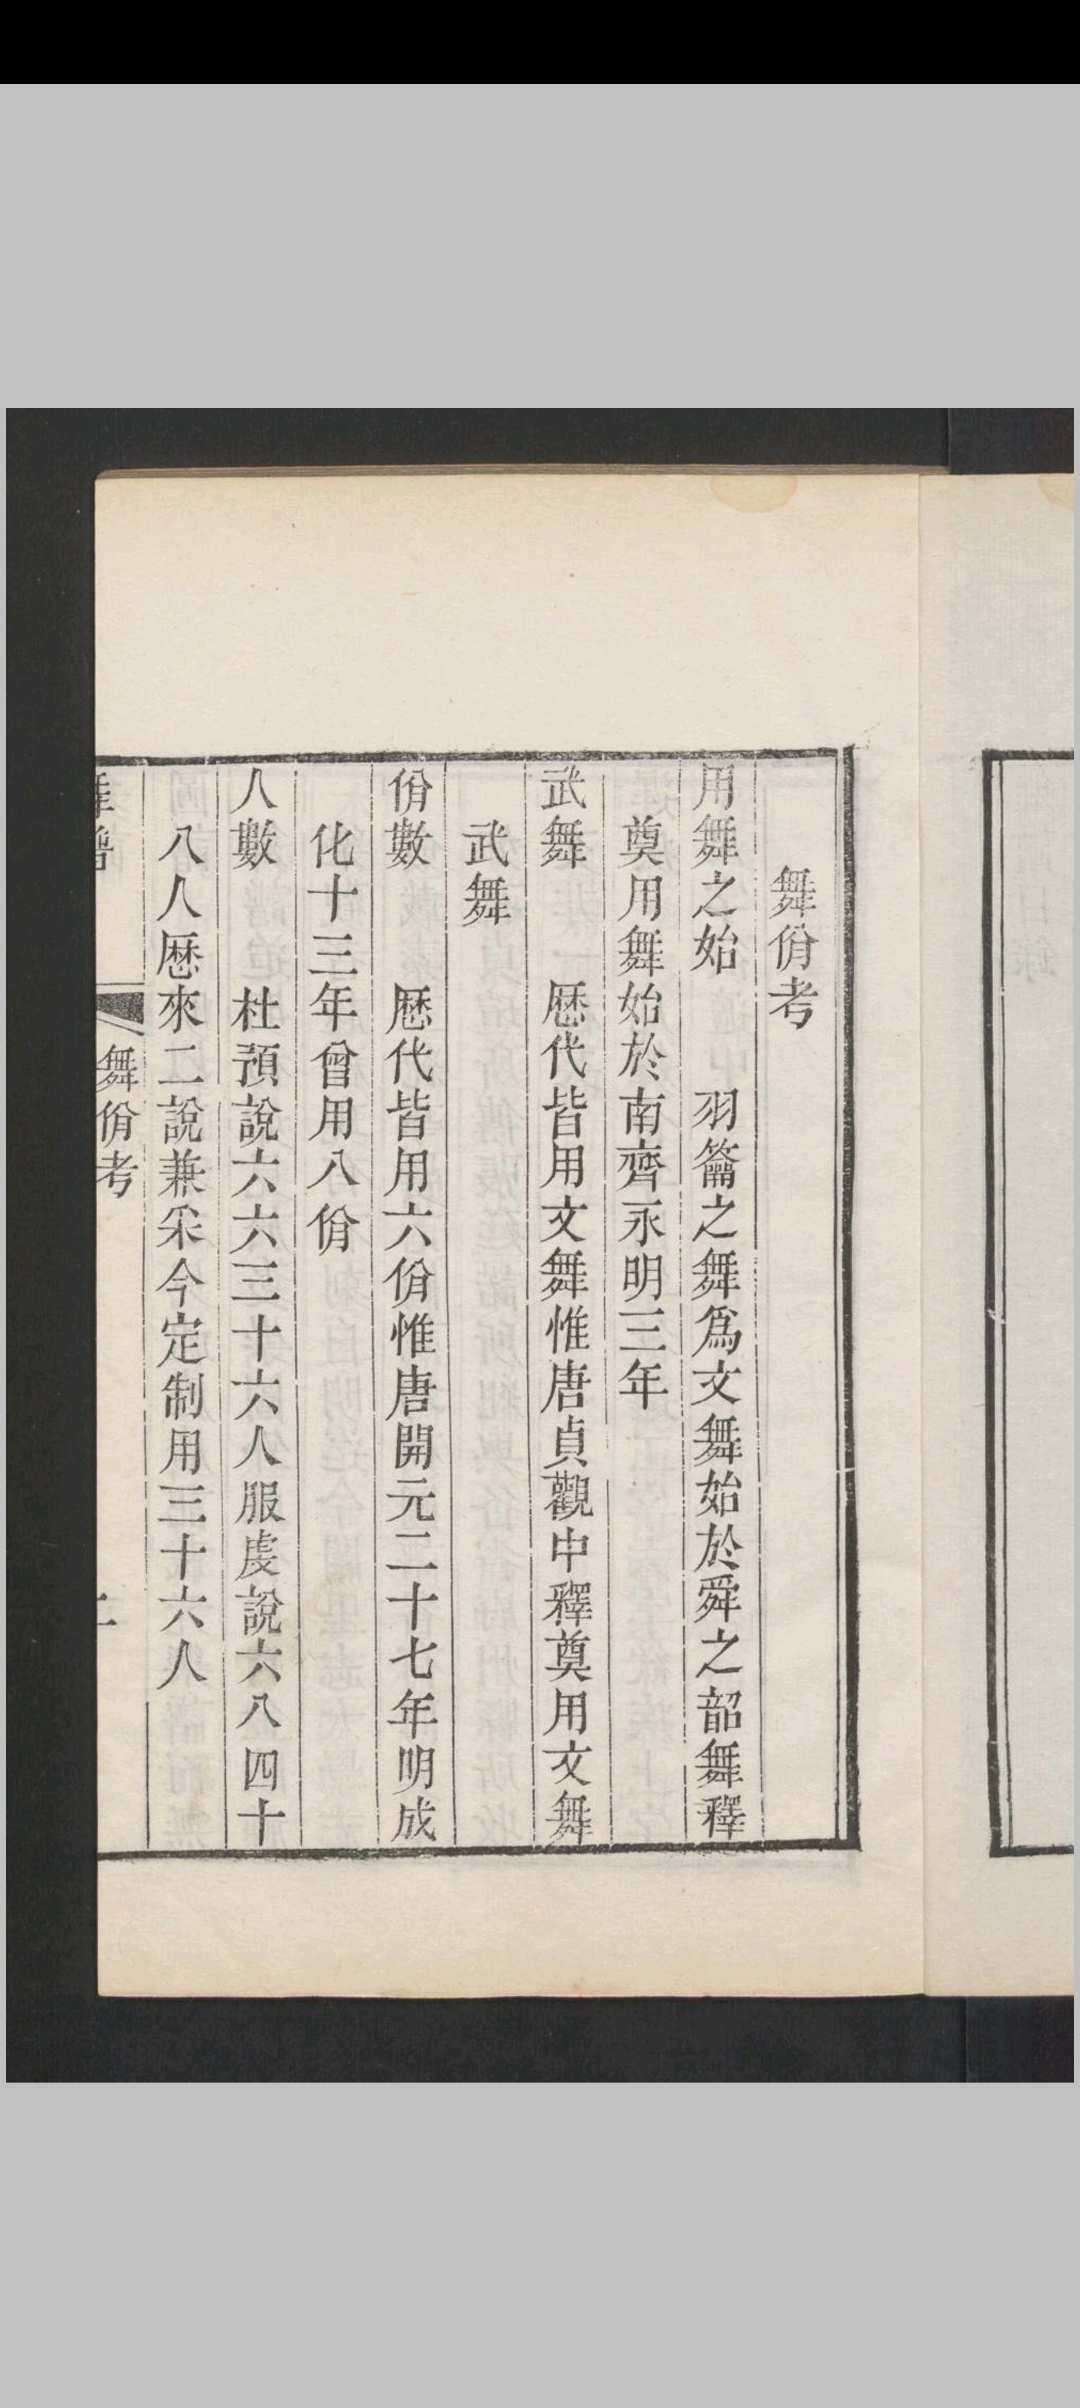 舞佾考
用舞之始　羽籥之舞爲文舞始於舜之韶舞釋
奠用舞始於南齊永明三年
武舞　歷代皆用文舞惟唐貞觀中釋奠用文舞
武舞
佾數　歷代皆用六佾惟唐開元二十七年明成
化十三年曾用八佾
人數　杜預說六六三十六人服虔說六八四十
八人歷來二說兼采今定制用三十六人
舞譜　舞佾考